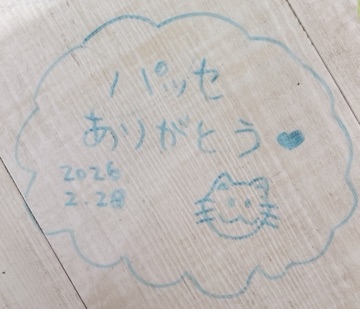 パッセ
ありがとう♥
2026
2.28